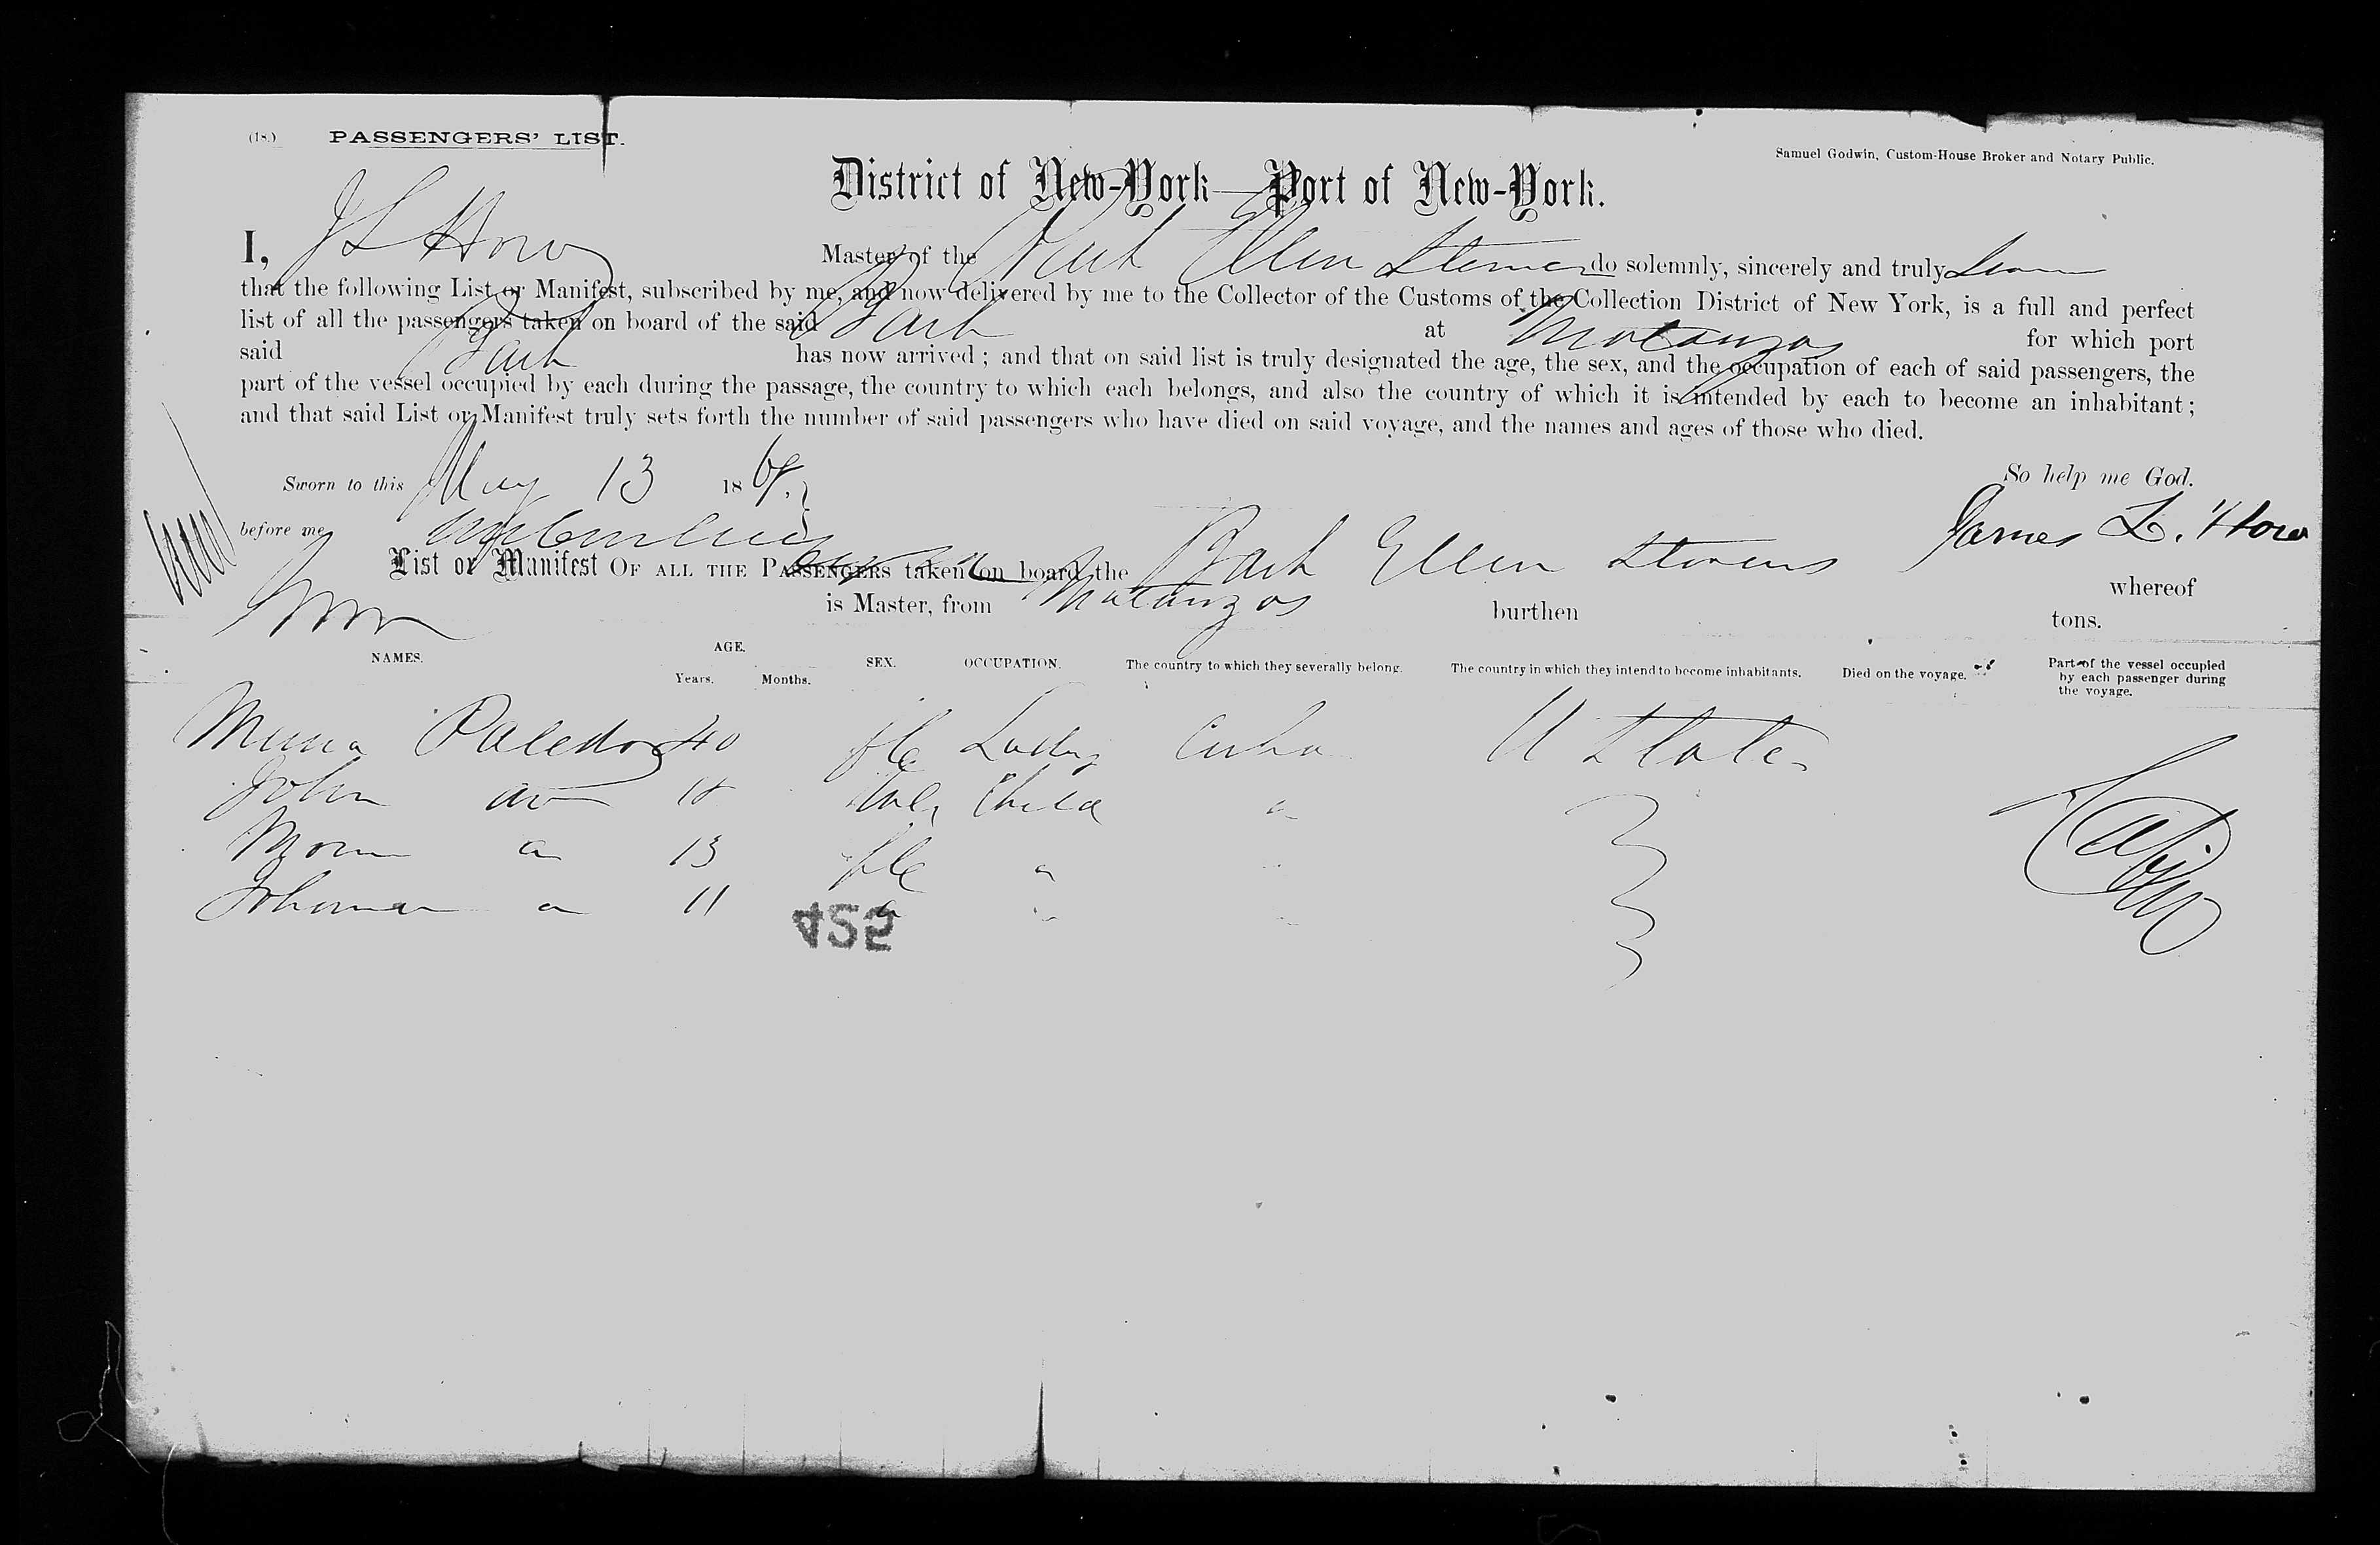 (18.) PASSENGERS' LIST.
Samuel Godwin, Custom-House Broker and Notary Public.
District of New-York—Port of New-York.
I, J L How Master of the Bark Ellen Stevens do solemnly, sincerely and truly swear
that the following List or Manifest, subscribed by me, and now delivered by me to the Collector of the Customs of the Collection District of New York, is a full and perfect
list of all the passengers taken on board of the said Bark at Matanzas for which port
said Bark has now arrived; and that on said list is truly designated the age, the sex, and the occupation of each of said passengers, the
part of the vessel occupied by each during the passage, the country to which each belongs, and also the country of which it is intended by each to become an inhabitant;
and that said List or Manifest truly sets forth the number of said passengers who have died on said voyage, and the names and ages of those who died.
Sworn to this May 13 18 So help me God.
before me James L. How
List or Manifest OF ALL THE PASSENGERS taken on board the Bark Ellen Stevens whereof
How is Master, from Matanzas burthen tons.
NAMES. AGE. Years. Months. SEX. OCCUPATION. The country to which they severally belong. The country in which they intend to become inhabitants. Died on the voyage. Part of the vessel occupied by each passenger during the voyage.
40 fle Lady Cuba U States
John child "
" 13 fle "
" 11 " "
Cabin
452